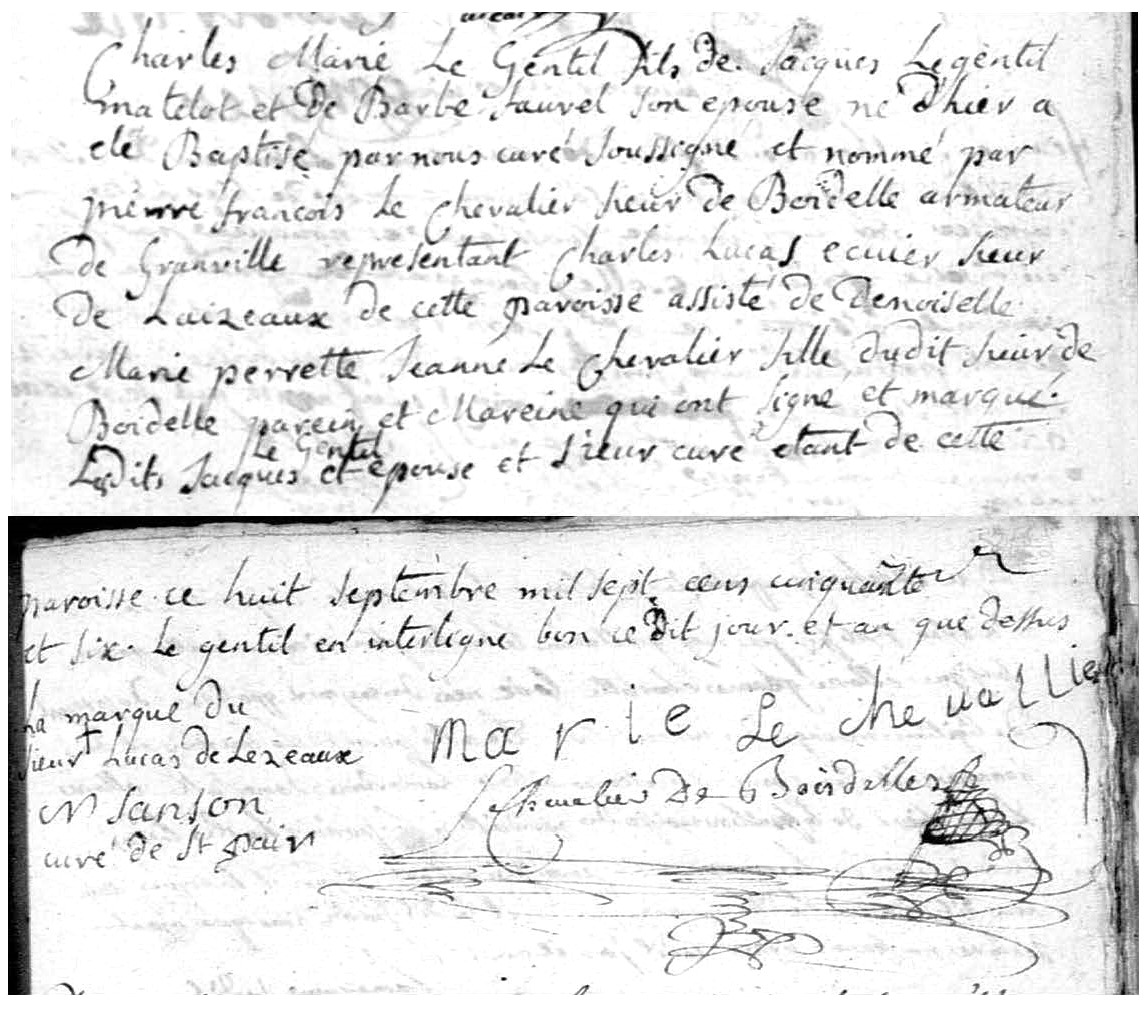 Charles Marie Le Gentil fils de Jacques Legentil
matelot et de Barbe Fauvel son epouse né d'hier a
eté Baptisé par nous curé soussigné et nommé par
pierre françois Le Chevalier sieur de Boidelle armateur
de Granville representant Charles Lucas ecuier sieur
de Laizeaux de cette paroisse assisté de Demoiselle
Marie perrette Jeanne Le Chevalier fille dudit sieur de
Boidelle parein et Mareine qui ont signé et marqué
Le Gentil
Lesdits Jacques et epouse et sieur curé etant de cette
paroisse ce huit septembre mil sept cens cinquante
et six. Le gentil en interligne bon ce dit jour et an que dessus
La marque du
sieur + Lucas de Lezeaux
Marie Le chevallier
Lechevalier De Boisdelles
N Sanson
curé de St pair